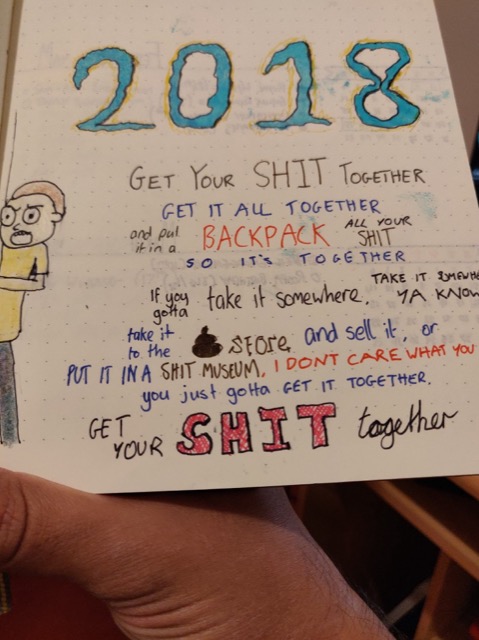 2018
GET YOUR SHIT TOGETHER
GET IT ALL TOGETHER
and put it in a BACKPACK ALL YOUR SHIT
SO IT'S TOGETHER
If you gotta take it somewhere, TAKE IT SOMEWHE YA KNOW
take it to the store, and sell it, or
PUT IT IN A SHIT MUSEUM, I DONT CARE WHAT YOU
you just gotta GET IT TOGETHER.
GET YOUR SHIT together